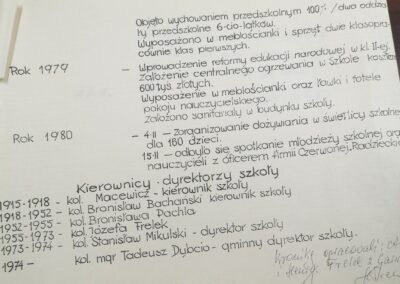 Objęto wychowaniem przedszkolnym 100% /dwa oddzia
ły przedszkolne 6-cio-latków.
Wyposażono w meblościanki i sprzęt dwie klasopra-
cownie klas pierwszych.
Rok 1979 - Wprowadzenie reformy edukacji narodowej w kl. II-ej.
Założenie centralnego ogrzewania w Szkole koszte
600 tys. złotych.
Wyposażenie w meblościanki oraz ławki i fotele
pokoju nauczycielskiego.
Założono sanitariaty w budynku szkoły.
Rok 1980 - 4.II - Zorganizowanie dożywiania w świetlicy szkolne
dla 160 dzieci.
15.II - odbyło się spotkanie młodzieży szkolnej ora
nauczycieli z oficerem Armii Czerwonej, Radzieckie
Kierownicy - dyrektorzy szkoły
1915-1918 - kol. Macewicz - kierownik szkoły
1918-1952 - kol. Bronisław Bachański kierownik szkoły
1952-1955 - kol. Bronisława Pachla
1955-1973 - kol. Józefa Frelek
1973-1974 - kol. Stanisław Mikulski - dyrektor szkoły
1974 - kol. mgr Tadeusz Dybcio - gminny dyrektor szkoły.
Kronikę opracowali:
i Frelek z